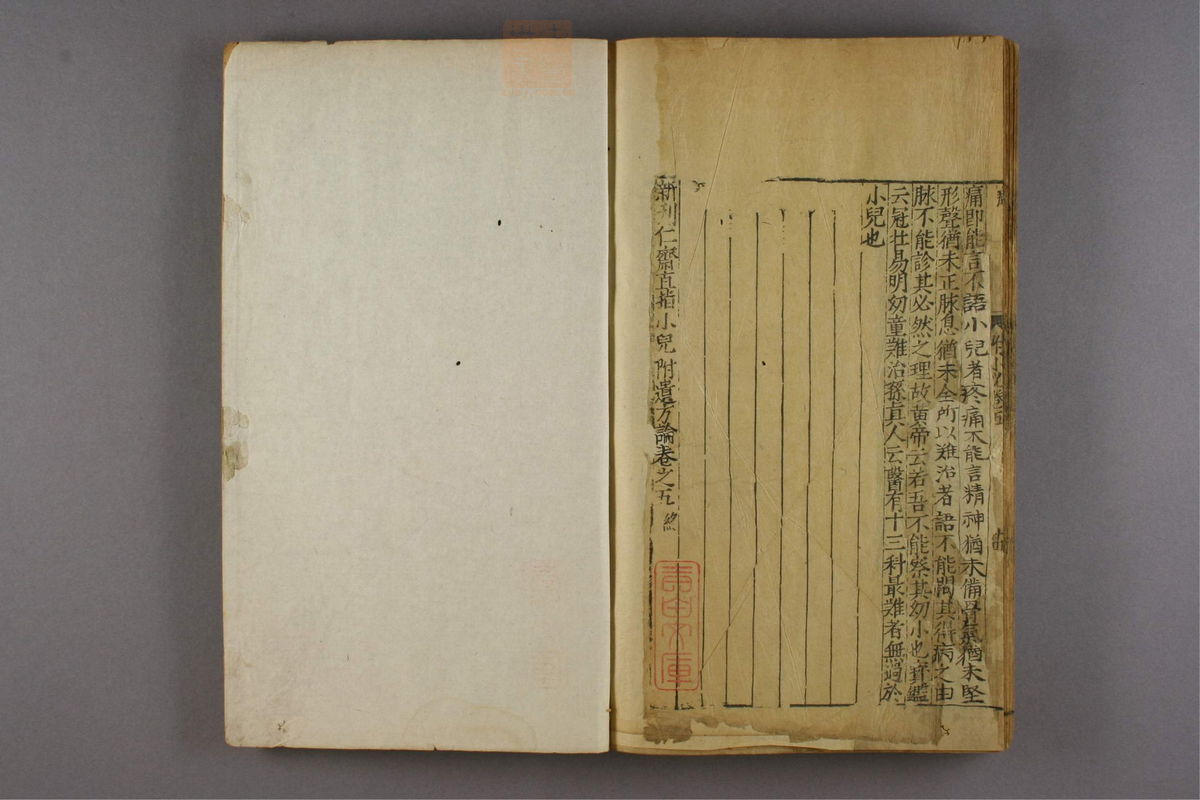 痛即能言不語小兒者疼痛不能言精神猶未備骨氣猶未堅
形聲猶未正脉息猶未全所以難治者語不能問其得病之由
脉不能診其必然之理故黄帝云若吾不能察其幼小也寳鑑
云冠壮易明幼童難治孫真人云醫有十三科最難者無過於
小兒也
新刋仁齋直指小兒附遺方論卷之五 終